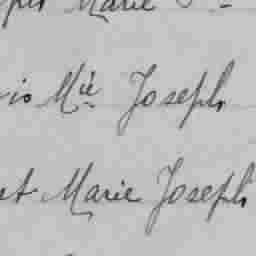 Marie
is Mie Joseph
et Marie Joseph